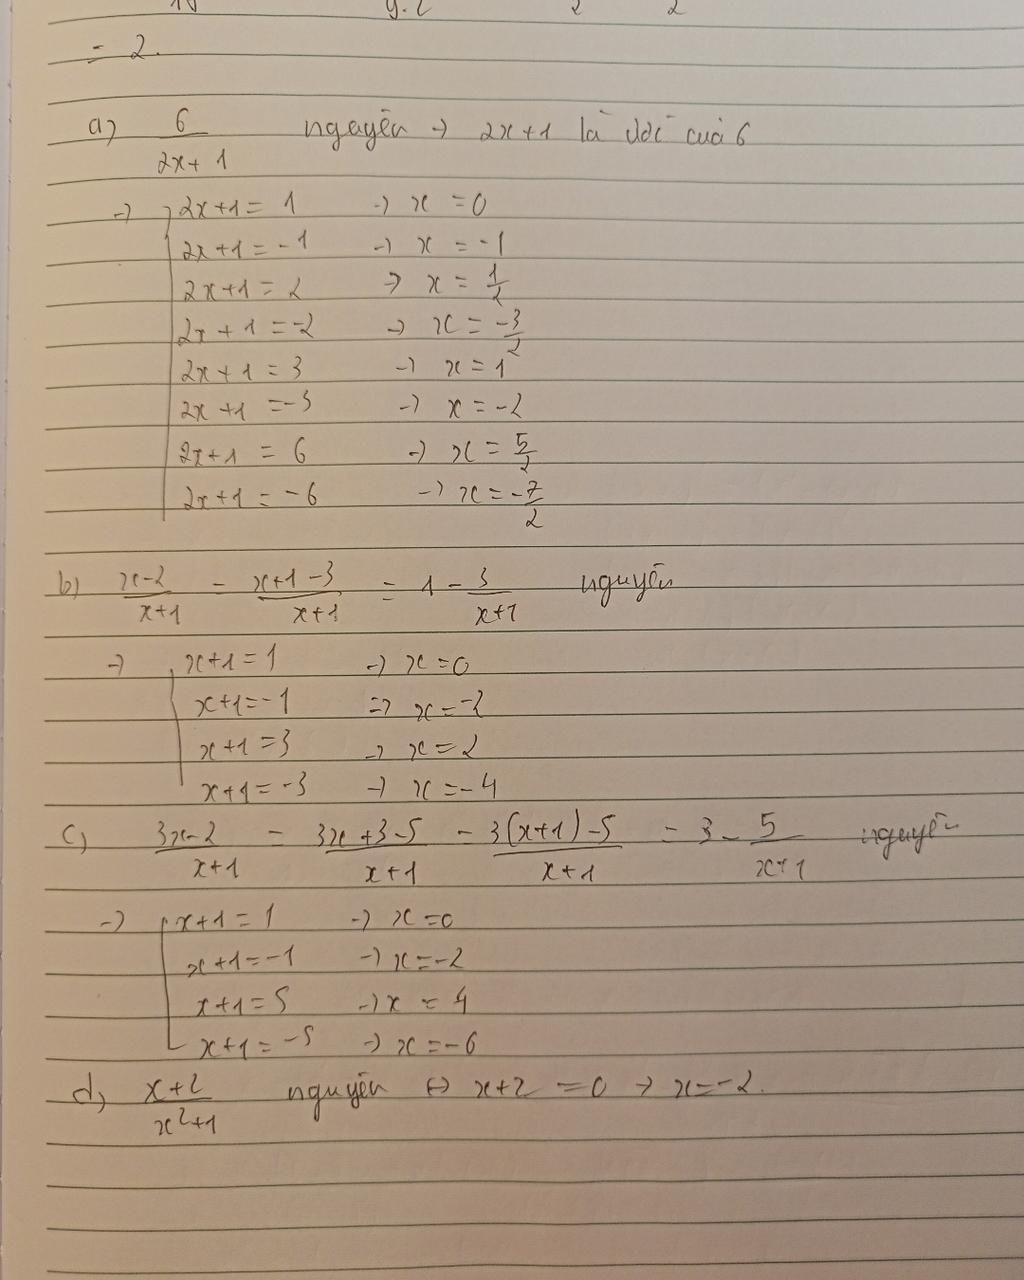 = 2.
a) 6/(2x+1) nguyên → 2x+1 là ước của 6
→ 2x+1 = 1 → x = 0
2x+1 = -1 → x = -1
2x+1 = 2 → x = 1/2
2x+1 = -2 → x = -3/2
2x+1 = 3 → x = 1
2x+1 = -3 → x = -2
2x+1 = 6 → x = 5/2
2x+1 = -6 → x = -7/2
b) (x-2)/(x+1) = (x+1-3)/(x+1) = 1 - 3/(x+1) nguyên
→ x+1 = 1 → x = 0
x+1 = -1 => x = -2
x+1 = 3 → x = 2
x+1 = -3 → x = -4
c) (3x-2)/(x+1) = (3x+3-5)/(x+1) = (3(x+1)-5)/(x+1) = 3 - 5/(x+1) nguyên
→ x+1 = 1 → x = 0
x+1 = -1 → x = -2
x+1 = 5 → x = 4
x+1 = -5 → x = -6
d) (x+2)/(x²+1) nguyên ↔ x+2 = 0 → x = -2.